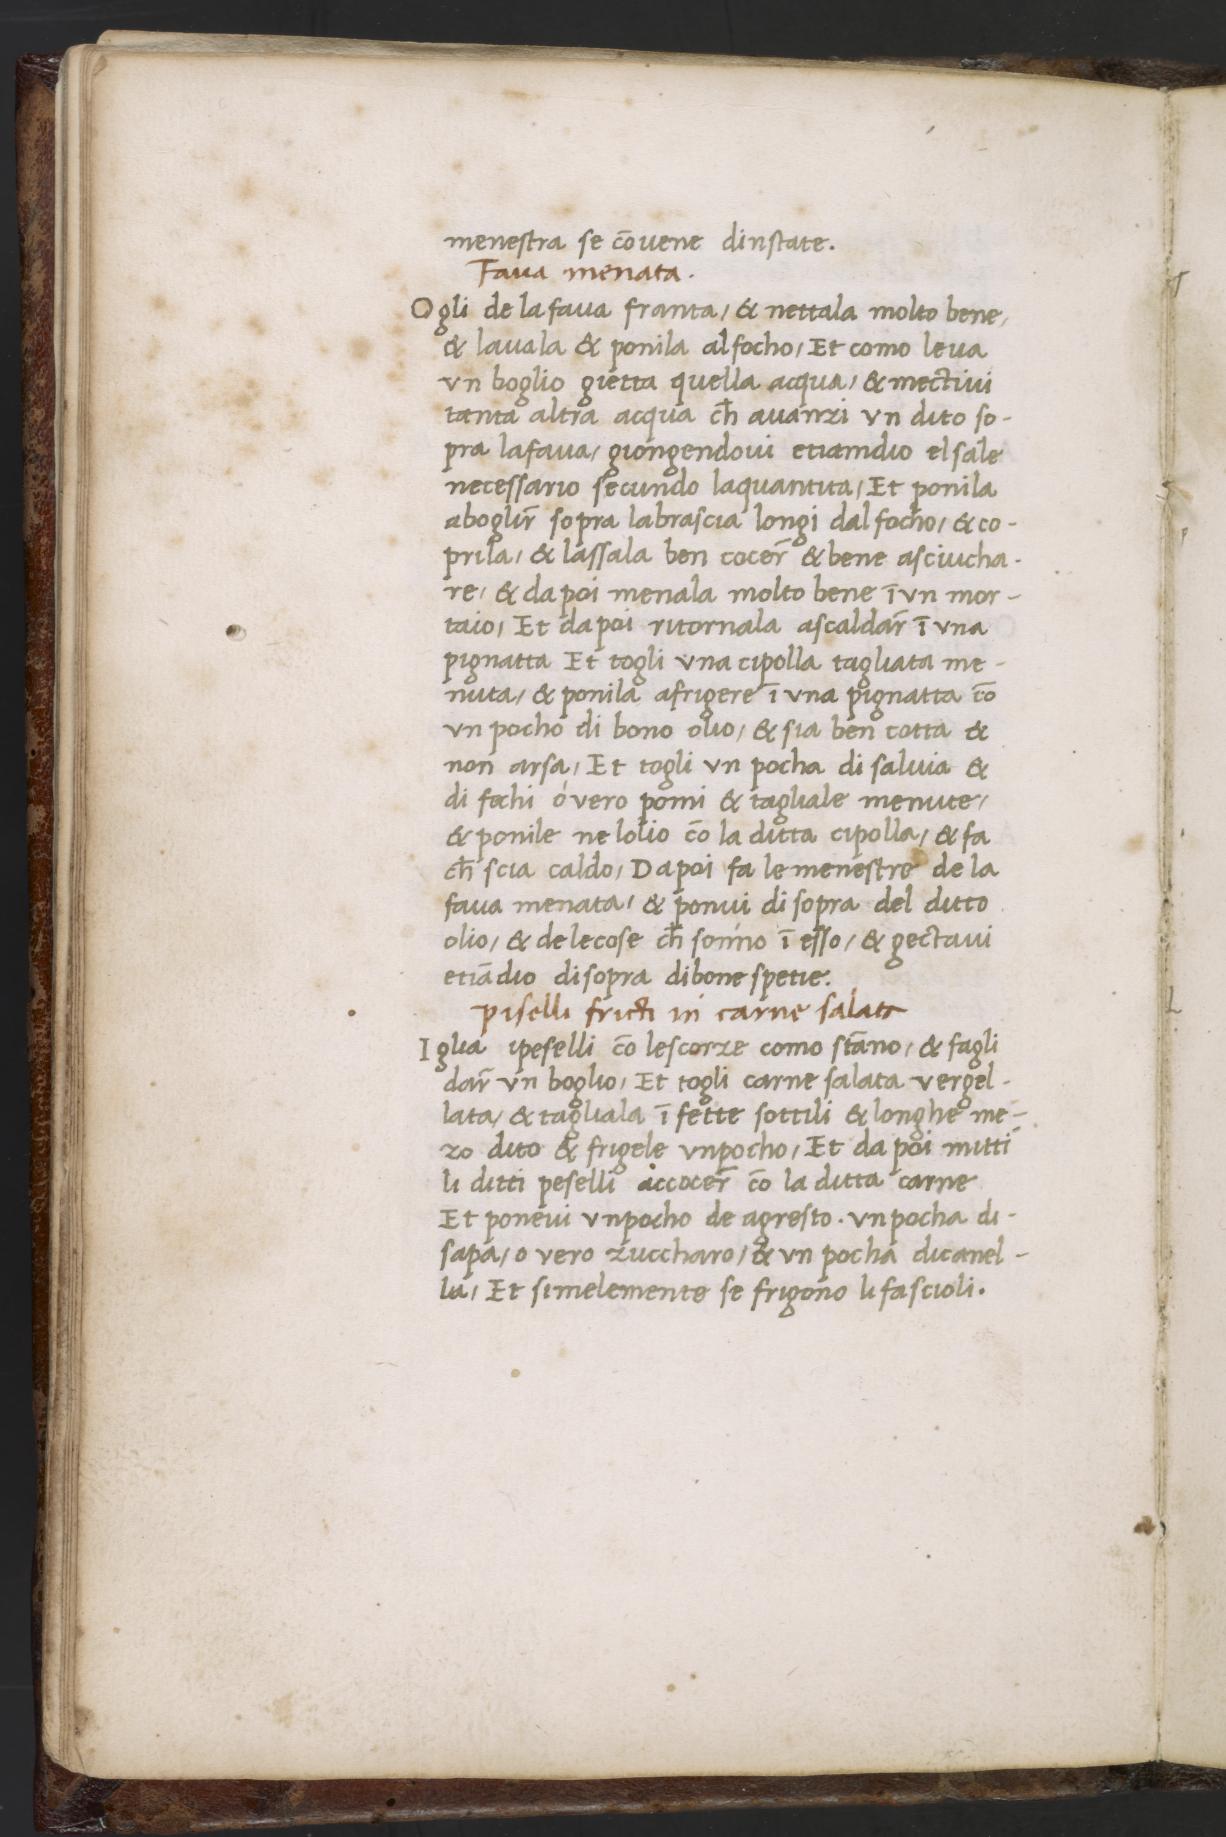 menestra se cōuene dinstate.
Faua menata.
Ogli de la faua franta, & nettala molto bene,
& lauala & ponila al focho, Et como leua
vn boglio gietta quella acqua, & mectiui
tanta altra acqua ch̄ auanzi vn dito so-
pra lafaua, giongendoui etiamdio el sale
necessario secundo laquantita, Et ponila
aboglir̄ sopra labrascia longi dal focho, & co-
prila, & lassala ben cocer̄ & bene asciucha-
re, & da poi menala molto bene ī vn mor-
taio, Et da poi ritornala ascaldar̄ ī vna
pignatta Et togli vna cipolla tagliata me-
nuta, & ponila afrigere ī vna pignatta cō
vn pocho di bono olio, & sia ben cotta &
non arsa, Et togli vn pocha di saluia &
di fichi ó vero pomi & tagliale menute,
& ponile ne lolio cō la ditta cipolla, & fa
ch̄ scia caldo, Da poi fa le menestre de la
faua menata, & ponui di sopra del ditto
olio, & de lecose ch̄ sonno ī esso, & gectaui
etiādio disopra dibone spetie.
piselli fricti in carne salata
Iglia ipeselli cō lescorze como stāno, & fagli
dar̄ vn boglio, Et togli carne salata vergel-
lata, & tagliala ī fette sottili & longhe me-
zo dito & frigele vnpocho, Et da poi mitti
li ditti peselli accocer̄ cō la ditta carne
Et poneui vnpocho de agresto. vnpocha di-
sapa, o vero zuccharo, & vn pocha dicanel-
la, Et simelemente se frigono li fascioli.